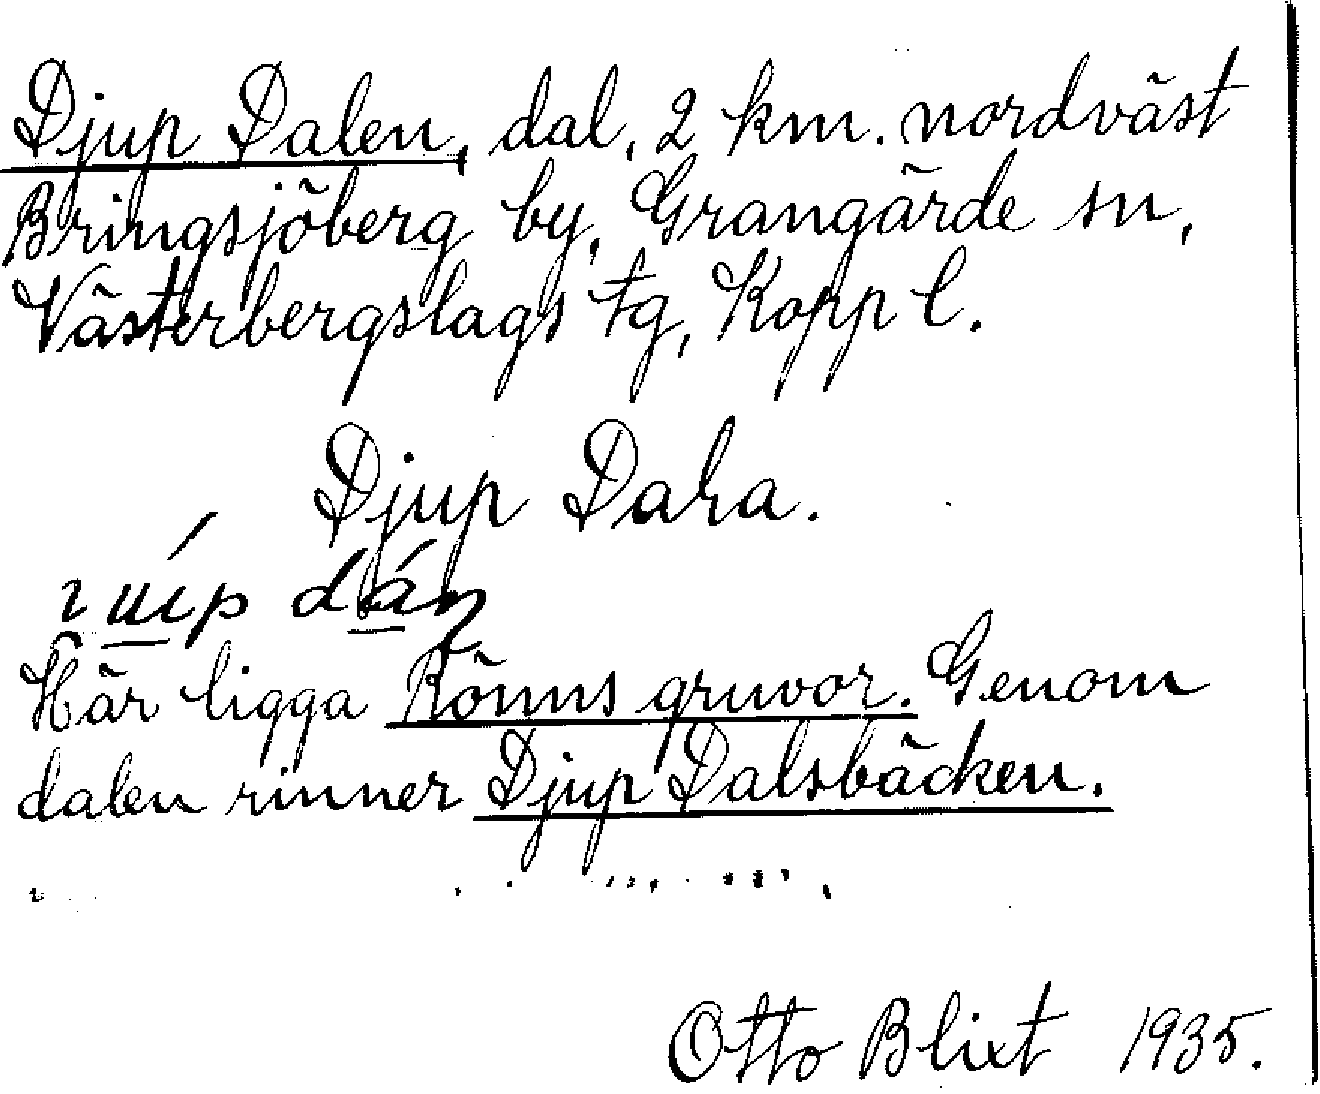 Djup Dalen, dal, 2 km. nordväst
Bringsjöberg by, Grangärde sn,
Västerbergslags tg, Kopp l.
Djup Dara.
Här ligga Rönns gruvor. Genom
dalen rinner Djup Dalsbäcken.
Otto Blixt 1935.